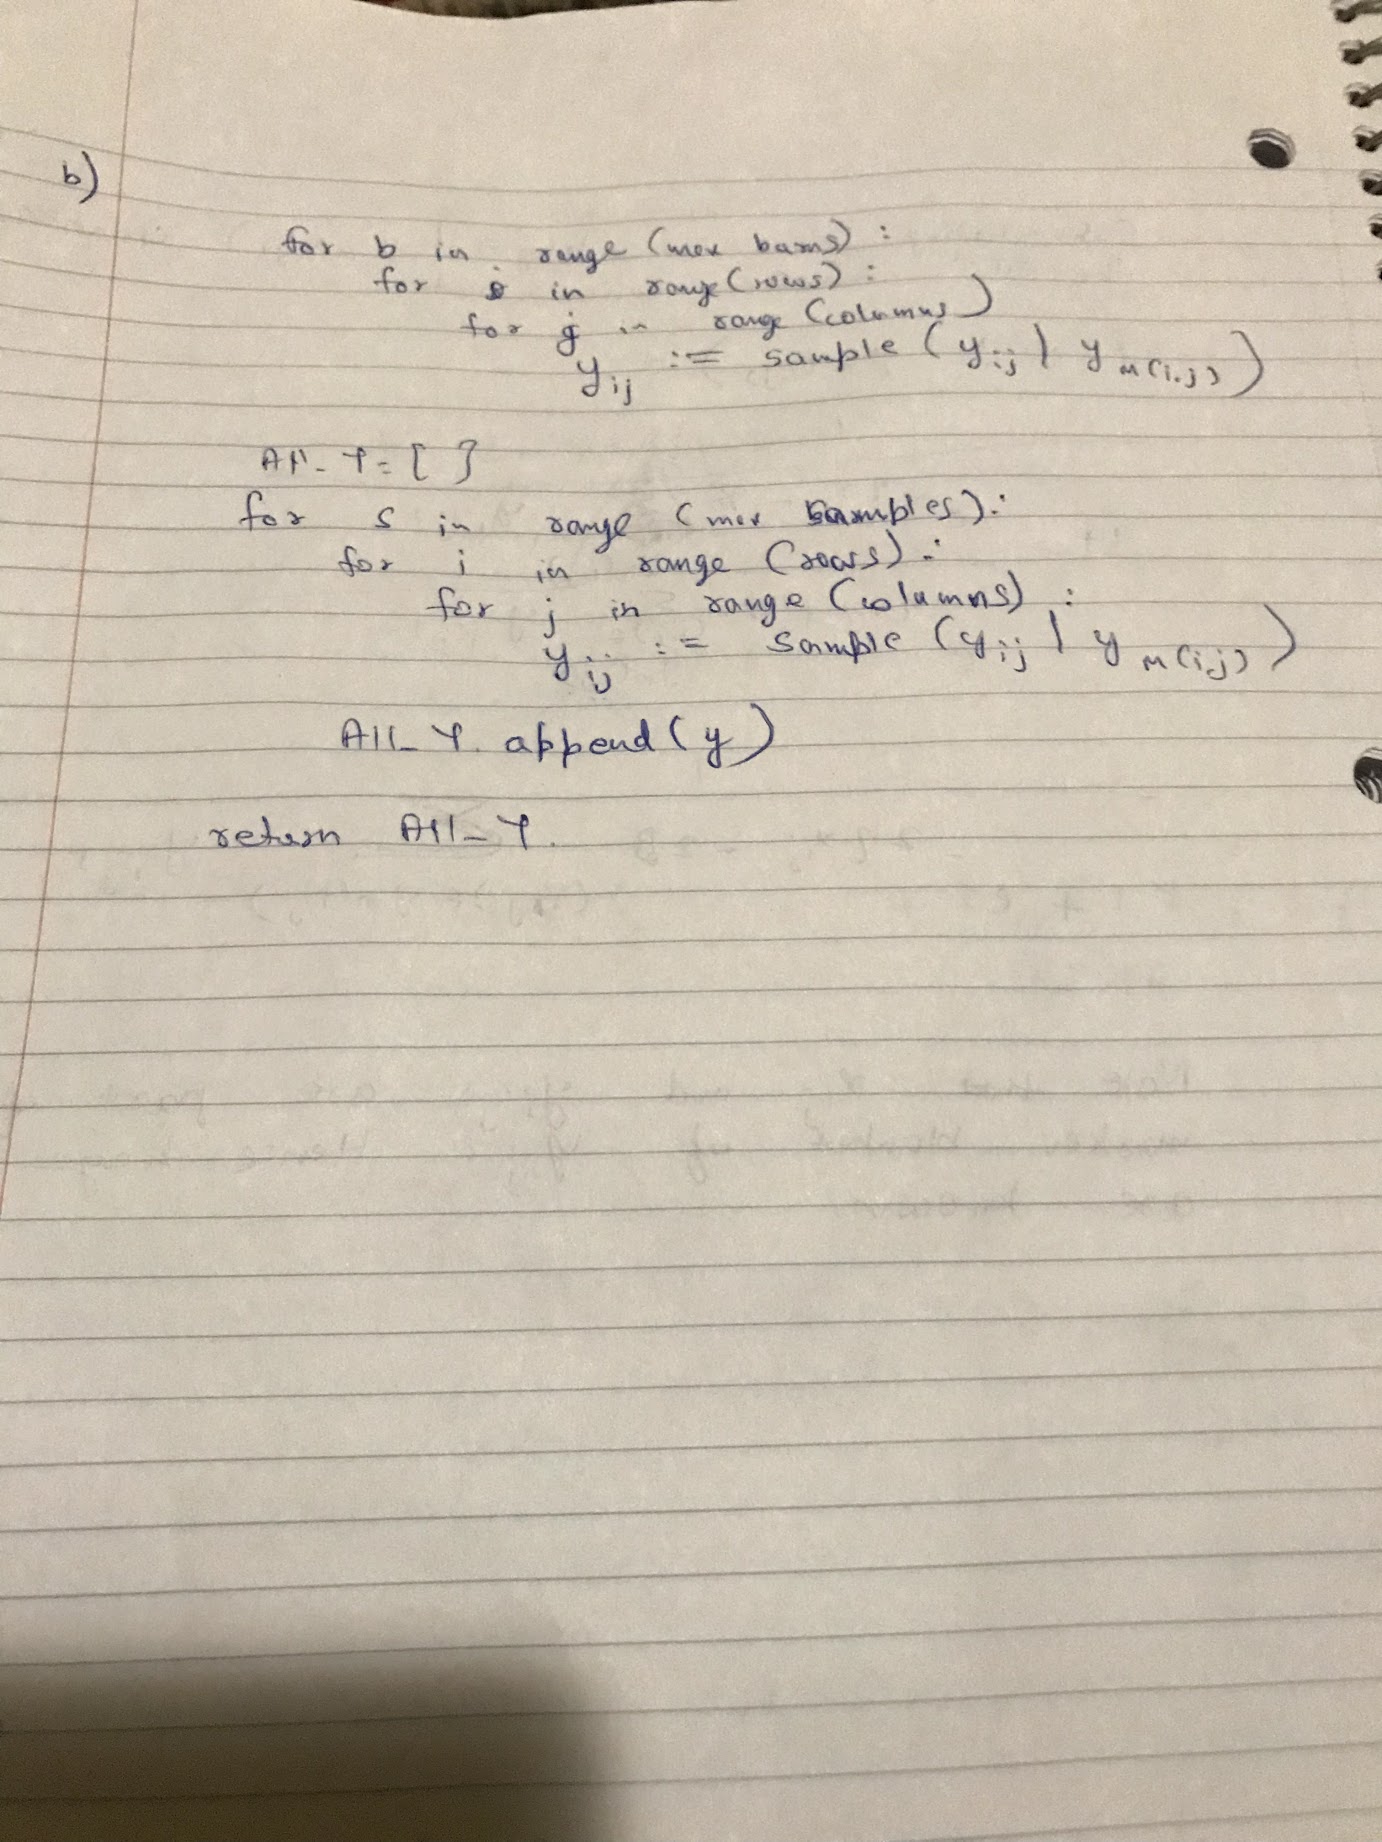 b)
for b in range (max burns) :
for i in range (rows) :
for j in range (columns)
y ij := sample ( y ij | y M(i,j) )
All_Y = [ ]
for s in range (max samples) :
for i in range (rows) :
for j in range (columns) :
y ij := sample ( y ij | y M(i,j) )
All_Y. append ( y )
return All_Y.